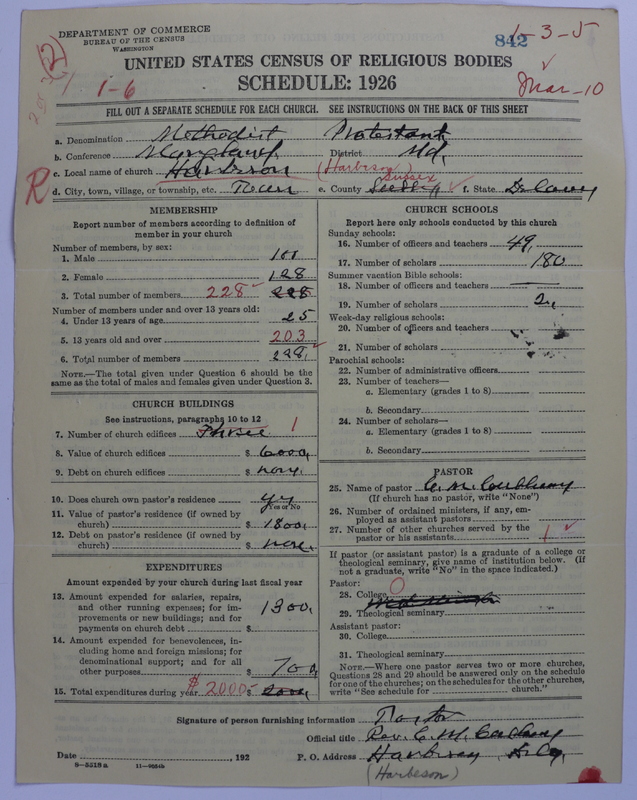 DEPARTMENT OF COMMERCE
BUREAU OF THE CENSUS
WASHINGTON
(2)
1-6
842
1-3-5
Mar-10
UNITED STATES CENSUS OF RELIGIOUS BODIES
SCHEDULE: 1926
FILL OUT A SEPARATE SCHEDULE FOR EACH CHURCH. SEE INSTRUCTIONS ON THE BACK OF THIS SHEET
a. Denomination Methodist Protestant
b. Conference Maryland District Md.
c. Local name of church Harbeson (Harbeson)
R
d. City, town, village, or township, etc. Town e. County Sussex f. State
MEMBERSHIP
Report number of members according to definition of
member in your church
Number of members, by sex:
1. Male 100
2. Female 128
3. Total number of members 228 228
Number of members under and over 13 years old:
4. Under 13 years of age 25
5. 13 years old and over 203
6. Total number of members 228
NOTE.—The total given under Question 6 should be
same as the total of males and females given under Question 3.
CHURCH BUILDINGS
See instructions, paragraphs 10 to 12
7. Number of church edifices Three 1
8. Value of church edifices $ 6000,
9. Debt on church edifices $
10. Does church own pastor's residence
Yes or No
11. Value of pastor's residence (if owned by
church) $ 1800,
12. Debt on pastor's residence (if owned by
church) $ none
EXPENDITURES
Amount expended by your church during last fiscal year
13. Amount expended for salaries, repairs,
and other running expenses; for im-
provements or new buildings; and for
payments on church debt $ 1300,
14. Amount expended for benevolences, in-
cluding home and foreign missions; for
denominational support; and for all
other purposes $ 700,
15. Total expenditures during year $2000 $ 2000,
CHURCH SCHOOLS
Report here only schools conducted by this church
Sunday schools:
16. Number of officers and teachers 49,
17. Number of scholars 180
Summer vacation Bible schools:
18. Number of officers and teachers
19. Number of scholars
Week-day religious schools:
20. Number of officers and teachers
21. Number of scholars
Parochial schools:
22. Number of administrative officers
23. Number of teachers—
a. Elementary (grades 1 to 8)
b. Secondary
24. Number of scholars—
a. Elementary (grades 1 to 8)
b. Secondary
PASTOR
25. Name of pastor
(If church has no pastor, write "None")
26. Number of ordained ministers, if any, em-
ployed as assistant pastors
27. Number of other churches served by the
pastor or his assistants 1
If pastor (or assistant pastor) is a graduate of a college or
theological seminary, give name of institution below. (If
not a graduate, write "No" in the space indicated.)
Pastor:
28. College 0
29. Theological seminary
Assistant pastor:
30. College
31. Theological seminary
NOTE.—Where one pastor serves two or more churches,
Questions 28 and 29 should be answered only on the schedule
for one of the churches; on the schedules for the other churches,
write "See schedule for church."
Signature of person furnishing information Pastor
Official title Rev. C. M.
Date 192 P. O. Address Harbeson
8-5518 a
(Harbeson)